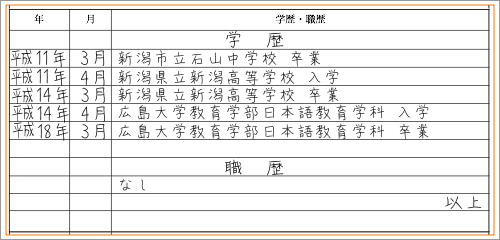 年 月 学歴・職歴
学 歴
平成11年 3月 新潟市立石山中学校 卒業
平成11年 4月 新潟県立新潟高等学校 入学
平成14年 3月 新潟県立新潟高等学校 卒業
平成14年 4月 広島大学教育学部日本語教育学科 入学
平成18年 3月 広島大学教育学部日本語教育学科 卒業
職 歴
なし
以上